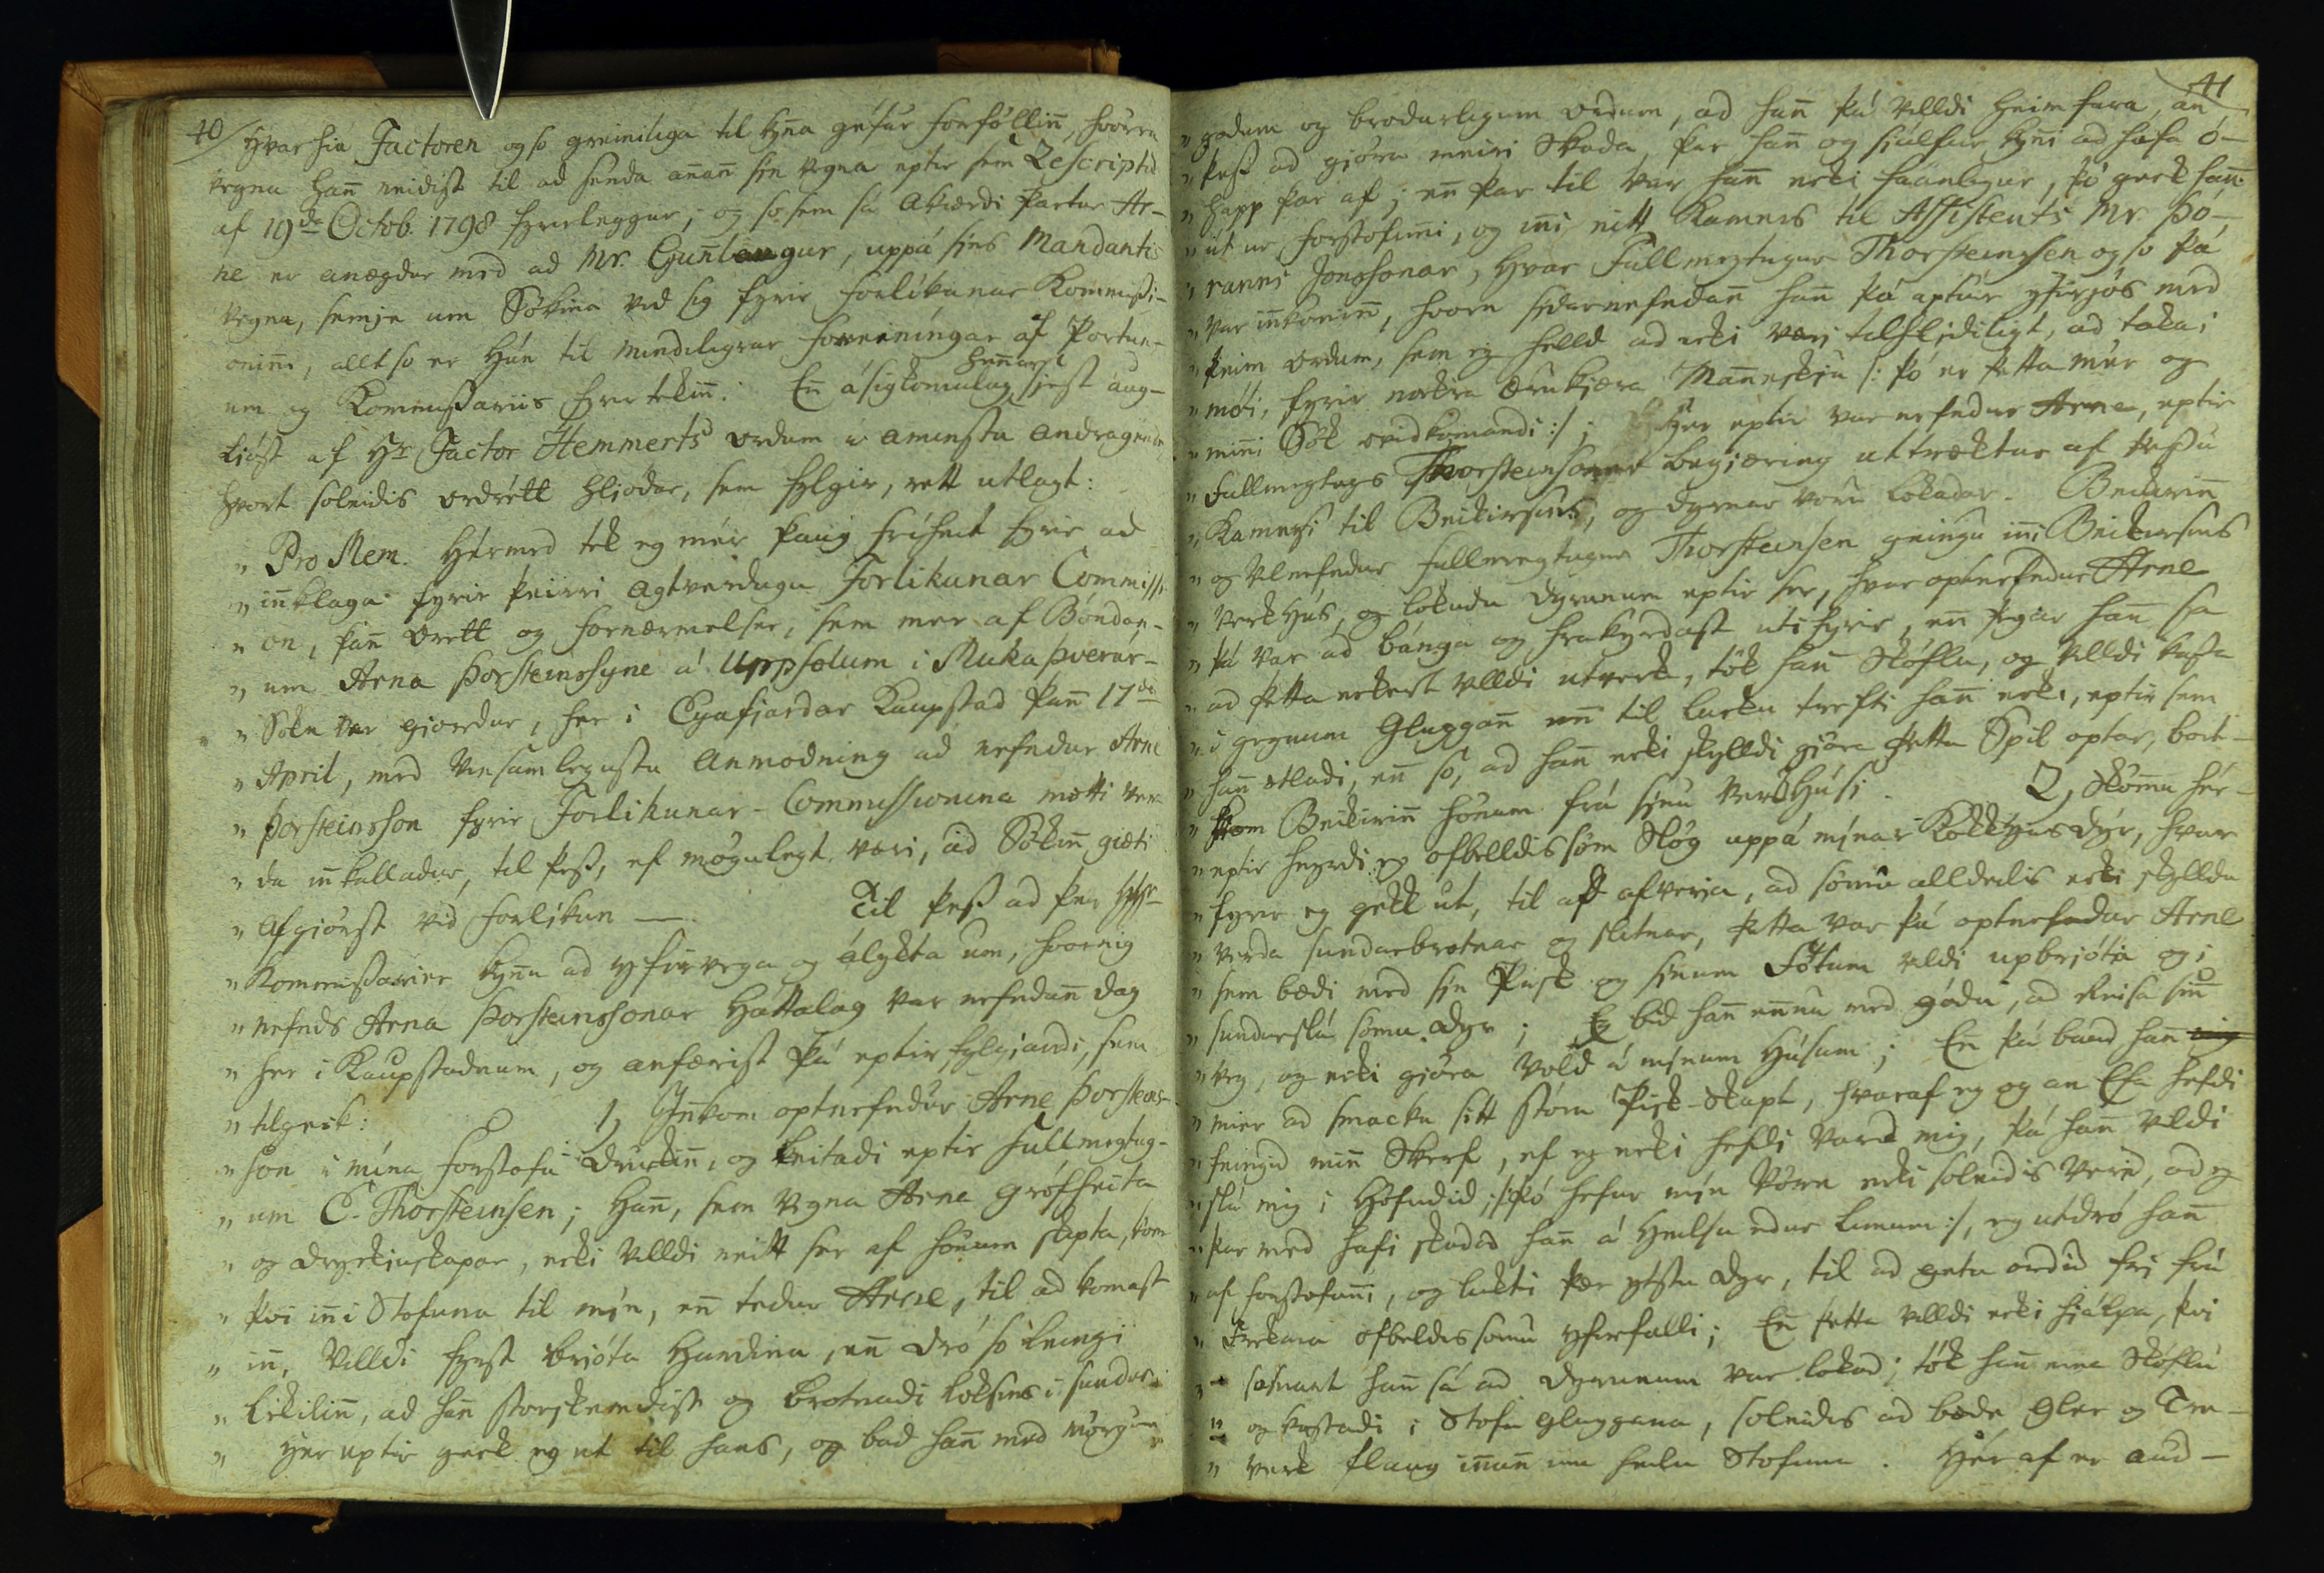 40
Hvar hia Factoren og so greiniliga til kyna gefur forföllin̄, hvörra
vegna han̄ neidist til ad senda an̄an̄ sin vegna eptir sem Rescriptid
af 19de Octob. 1798 fyrerleggur; og so sem sá Akiærdi Partur Ar-
ne er anægdur med ad Mr. Gun̄laugur, uppá sins Mandantis
vegna, semje um Sökina vid sig fyrir Forlikunar Kommissi-
onin̄i, allt so er hún til mindiligrar foreiningar af Portun-
um og Kommissariis fyrertekin̄. En̄ ásigkomulag hen̄ar sjest aug-
liost af Hr Factor Hemmerts ordum i Aminstu Andragende
hvort soleidis ordrétt hliodar, sem fylgir, rett utlagt:
„ Pro Mem. Hérmed tek eg mér þaug friheit fyrir ad
„ in̄klaga fyrir þeirri Agtverdugu Forlikunar Commissi-
„ on, þan̄ Órett og Fornærmelser, sem mer af Bóndan-
„ um Arna Þorsteinssyne á Uppsölum i Muka Þverár-
„ Sókn var giordur, her i Eyafjardar Kaupstad þan̄ 17de
„ April, med vinsamlegustu Anmodning ad nefndur Arne
„ Þorsteinsson fyrir Forlikunar-Commissionina mætti ver-
„ da in̄kalladur, til þess, ef mögulegt væri, ad Sökin̄ giæti
„ afgiörst vid Forlikun —. Til þess ad þeir Hr-
„ Kommissarier kyn̄u ad yfirvega og álykta um, hvornig
„ nefnds Arna Þorsteinssonar Háttalag var nefndan̄ dag
„ her i Kaupstadnum, og anfærist þá eptirfylgiandi, sem
„ tilgeik: 1, In̄kom optnefndur Arne Þorsteins-
„ son i mina Forstofu druckin̄, og leitadi eptir Fullmegtug-
„ um C. Thorsteinsen; Han̄, sem vegna Arne gróf heita
„ og dryckiuskapar, ecki villdi neitt ser af hönum skipta, kom
„ þvi in̄i Stofuna til min, en̄ tedur Arne, til ad komast
„ in̄, villdi fyrst brjóta Hurdina, en̄ dró so leingi
„ Lickilin̄, ad han̄ storskemdist og brotnadi loksins i sundur.
„ Her eptir geck eg ut til hans, og bad han̄ med mörgum
41
„ godum og brodurligum ordum, ad han̄ þá villdi heim fara, án
„ þess ad gjöra meiri Skada, þar han̄ og sjálfur kyn̄i ad hafa ó-
„ happ þar af; en̄ þar til var han̄ ecki fáanligur, þó geck han̄
„ út ur forstofun̄i, og in̄i eitt Kamers til Assistents Mr. Þó-
„ rarins Jonssonar, hvar Fullmegtugur Thorsteinsen og so þá
„ var in̄komin̄, hvorn sidarnefndan̄ han̄ þá aptur yfirjós med
„ þeim ordum, sem eg helld ad ecki væri tilhlidiligt, ad taka i
„ móti, fyrir nockra Ærukjæra Man̄eskju /: þó er þetta mér og
„ min̄i Sök ovidkomandi :/; Her eptir var nefndur Arne, eptir
„ Fullmegtugs Thorsteinsonar begiæring uttrecktur af þessu
„ Kamersi til Beikirsins, og dyrnar voru lokadar. Beikirin̄
„ og velnefndur Fullmegtugur Thorsteinsen geingu in̄i Beikirsins
„ verkhús, og lokudu dyrunum eptir ser, hvar optnefndur Arne
„ þá var ad bánga og hrakyrdast utifyrir, en̄ þegar han̄ sa
„ ad þetta eckert villdi utverk, tók han̄ Skóflu, og villdi kasta
„ i gegnum Gluggan̄ en̄ til lucku trefti han̄ ecki, eptir sem
„ han̄ ætladi, en̄ so, ad han̄ ecki skylldi gjöra þetta Spil optar, bort-
„ kom Beikirin̄ hönum frá sjnu verkhúsi. 2, Skömu hér-
„ eptir heyrdi eg ofbelldissöm Slög uppá mjnar Kockhuusdyr, hvar
„ fyrir eg gekk út, til ad afverja, ad sömu alldeilis ecki skylldu
„ verda sundurbrotnar og slitnar, þetta var þá optnefndur Arne
„ sem bædi med sin Pisk og sjnum Fótum vildi upbrjóta og i
„ sundurslá sömu dyr; Eg bid han̄ en̄nu med gódu, ad reisa sin̄
„ veg, og ecki gjöra vold á mjnum Húsum; En þá baud han̄
„ mier ad smacka sitt stóra Pisk-Skapt, hvaraf eg og án Efa hefdi
„ feingid min̄ Skerf, ef eg ecki hefdi vard mig, þá han̄ vildi
„ slá mig i Höfudid; /: þó hefur mjn Vörn ecki soleidis verid, ad eg
„ þar med hafi skadad han̄ á Heilsu edur Limum :/, eg utdró han̄
„ af forstofun̄i, og lukti þær ytstu dyr, til ad geta ordid fri frá
„ frekara ofbeldissömu yfirfalli; En̄ þetta villdi ecki hiálpa, þvi
„ sosnart han̄ sá ad dyrunum var lokad; tók han̄ eina Skóflu
„ og kastadi i Stofu gluggana, soleidis ad bæde Gler og Tre-
„ verk flaug in̄an̄ um heila Stofuna. Hér af er aud-